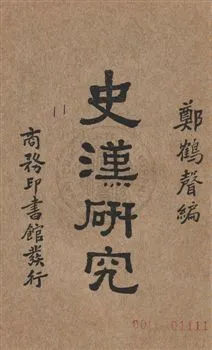 鄭鶴聲編
史漢研究
商務印書館發行
001 01111